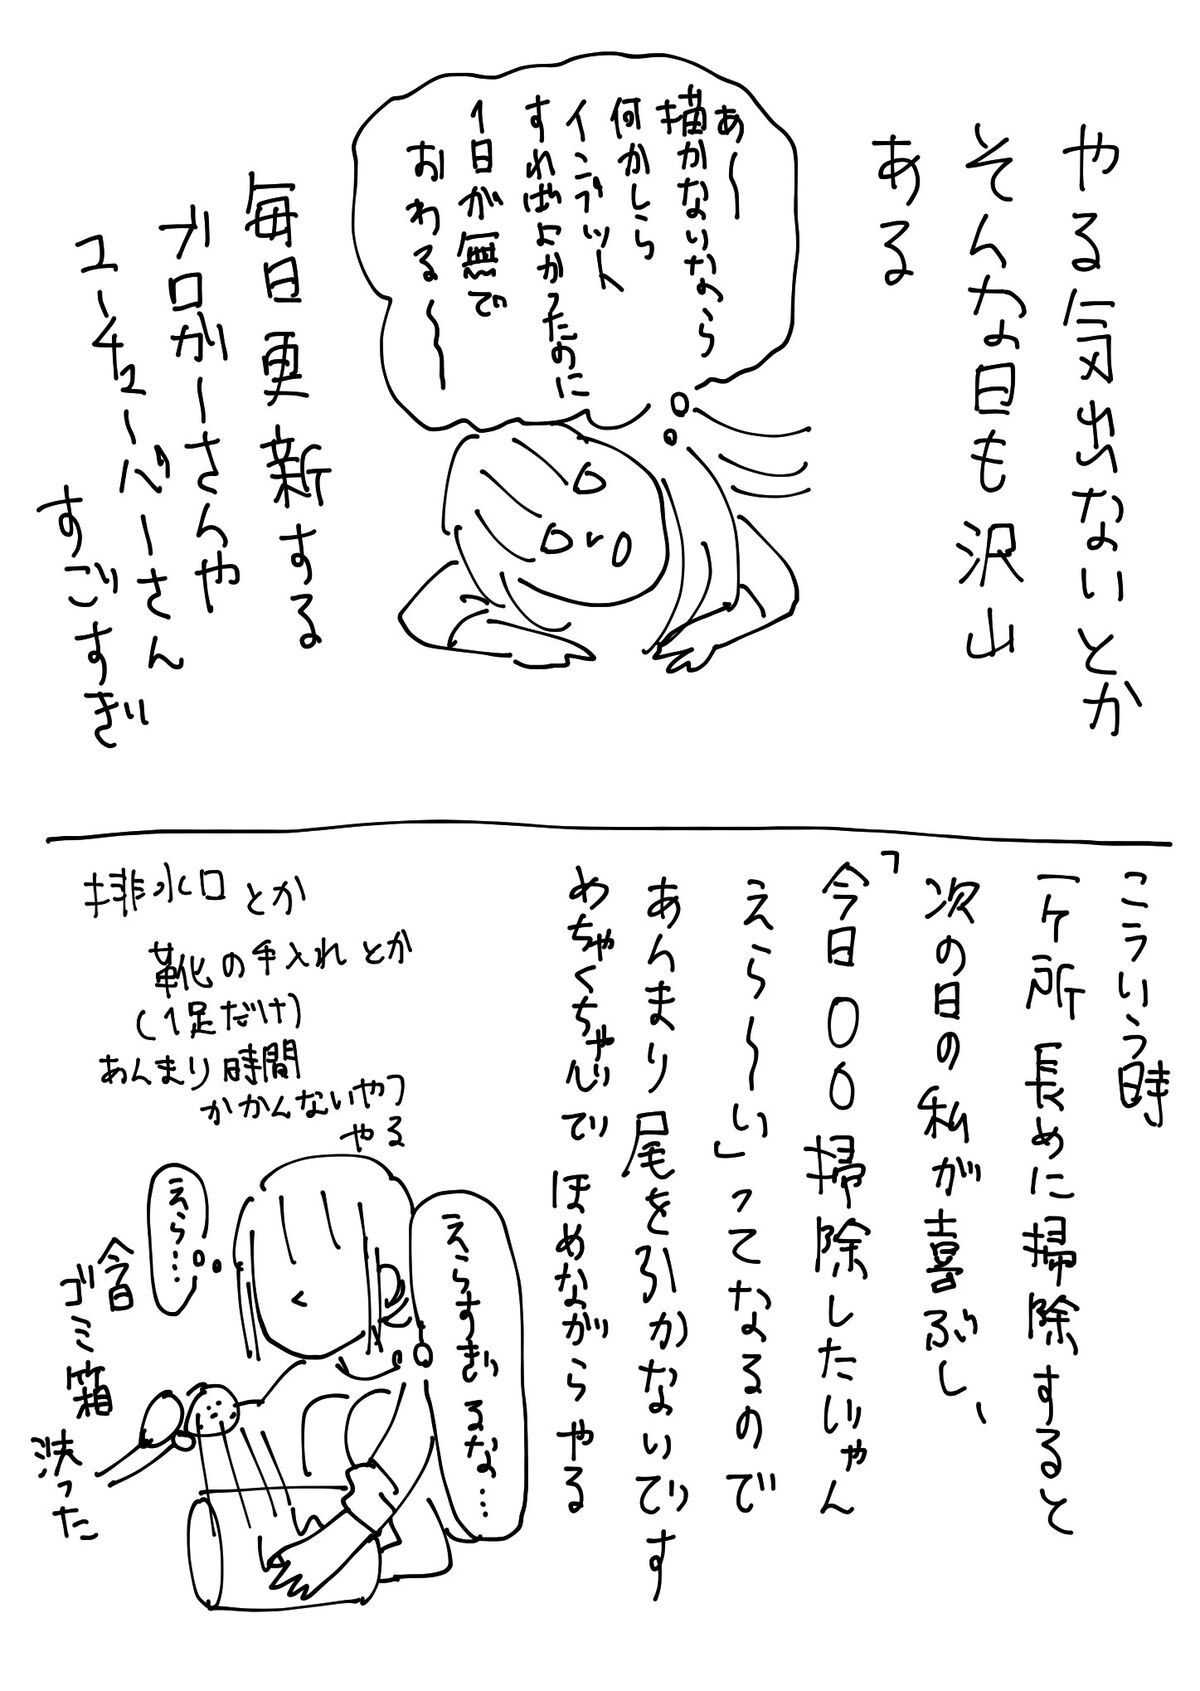 やる気出ないとか
そんな日も沢山
ある
あ〜
描かないなら
何かしら
インプット
すればよかったのに
1日が無で
おわる〜〜
毎日更新する
ブロガーさんや
ユーチューバーさん
すごすぎ
こういう時
一ケ所長めに掃除すると
次の日の私が喜ぶし、
「今日〇〇掃除したいじゃん
えら〜い」ってなるので
あんまり尾を引かないです
めちゃくちゃじでほめながらやる
排水口とか
靴の手入れとか
(1足だけ)
あんまり時間
かかんないやつ
やる
えらすぎるな…
えら…
今日
ゴミ箱
洗った